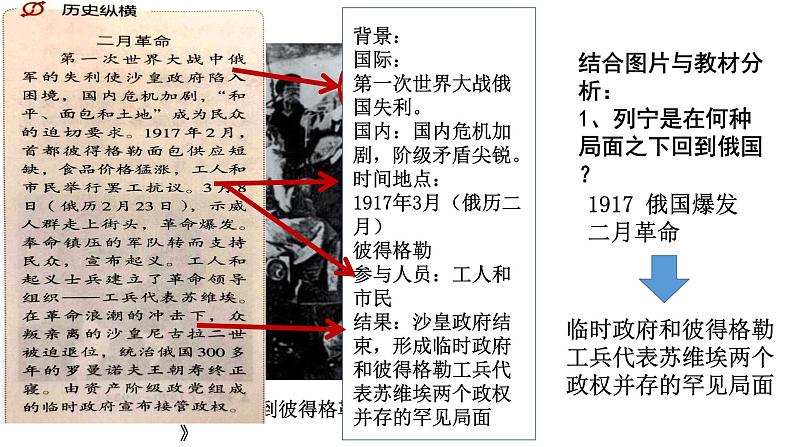 历史纵横
二月革命
第一次世界大战中俄
军的失利使沙皇政府陷入
困境，国内危机加剧，“和
平、面包和土地”成为民众
的迫切要求。1917年2月，
首都彼得格勒面包供应短
缺，食品价格猛涨，工人和
市民举行罢工抗议。3月8
日（俄历2月23日），示威
人群走上街头，革命爆发。
奉命镇压的军队转而支持
民众，宣布起义。工人和
起义士兵建立了革命领导
组织——工兵代表苏维埃。
在革命浪潮的冲击下，众
叛亲离的沙皇尼古拉二世
被迫退位，统治俄国300多
年的罗曼诺夫王朝寿终正
寝。由资产阶级政党组成
的临时政府宣布接管政权。
到彼得格勒
》
背景：
国际：
第一次世界大战俄
国失利。
国内：国内危机加
剧，阶级矛盾尖锐。
时间地点：
1917年3月（俄历二
月）
彼得格勒
参与人员：工人和
市民
结果：沙皇政府结
束，形成临时政府
和彼得格勒工兵代
表苏维埃两个政权
并存的罕见局面
结合图片与教材分
析：
1、列宁是在何种
局面之下回到俄国
？
1917 俄国爆发
二月革命
临时政府和彼得格勒
工兵代表苏维埃两个
政权并存的罕见局面